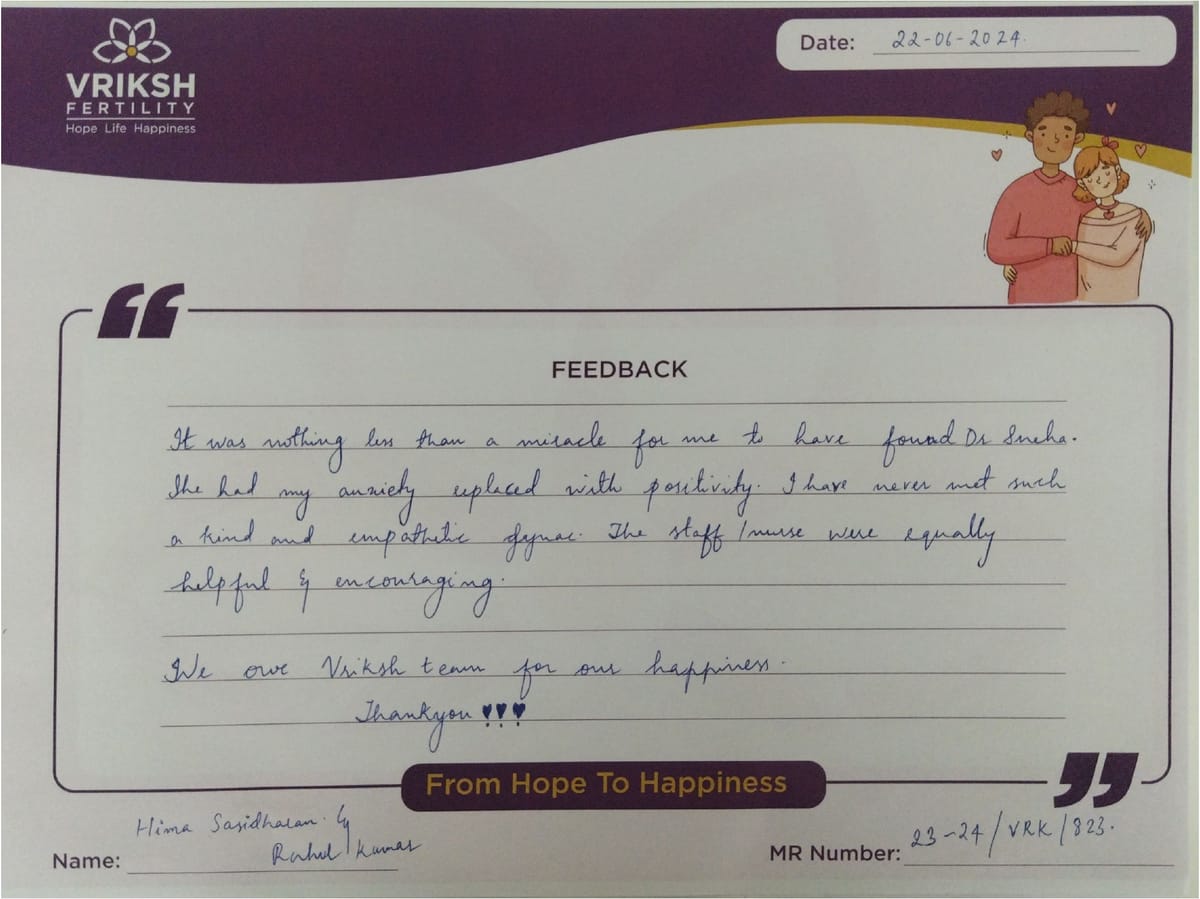 VRIKSH
FERTILITY
Hope Life Happiness
Date: 22-06-2024.
FEEDBACK
It was nothing less than a miracle for me to have found Dr Sneha.
She had my anxiety replaced with positivity. I have never met such
a kind and empathetic gynac. The staff /nurse were equally
helpful & encouraging.
We owe Vriksh team for our happiness.
Thankyou
From Hope To Happiness
Name: Hima Sasidharan &
Rahul Kumar
MR Number: 23-24/VRK/823.